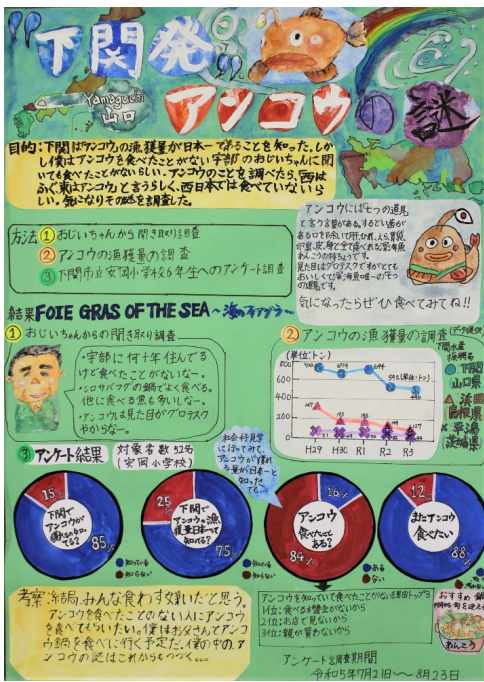 下関発
アンコウの謎
Yamaguchi
山口
目的:下関は「アンコウ」の漁獲量が日本一であることを知った。しか
し僕はアンコウを食べたことがない。宇部のおじいちゃんに聞
いても食べたことがないらしい。アンコウのことを調べたら、「西は
ふぐ東はアンコウ」と言うらしく、西日本では食べていないら
しい。気になりその謎を調査した。
アンコウには七つの道具
と言う言葉がある。
気になったらぜひ食べてみてね!!
方法①おじいちゃんから聞き取り調査
②アンコウの漁獲量の調査
③下関市立安岡小学校6年生へのアンケート調査
結果FOIE GRAS OF THE SEA~海のフォアグラ~
①おじいちゃんからの聞き取り調査
・宇部に何十年住んでる
けど食べたことがないなー。
・シロサバフグの鍋ではよく食べる。
他に食べる魚も多いしなー。
・アンコウは見た目がグロテスク
やからなー。
②アンコウの漁獲量の調査
(単位:トン)
800
600
400
200
0
H29
H30
R1
R2
R3
下関
山口県
浜田
島根県
平潟
茨城県
③アンケート結果
対象者数92名
(安岡小学校)
社会科見学
に行ってみて、
アンコウが獲れ
る量が日本一と
知った
15%
下関で
アンコウが
獲れるの知っ
てる?
85%
知っている
知らない
25%
下関で
アンコウの漁
獲量日本一って
知ってる?
75%
知っている
知らない
16%
アンコウ
食べたこと
ある?
84%
ある
ない
12%
またアンコウ
食べたい
88%
考察:結局、みんな食わず嫌いだと思う。
アンコウを食べたことのない人にアンコウ
を食べてもらいたい。僕はお父さんとアンコ
ウ鍋を食べに行く予定だ。僕の中の、ア
ンコウの謎はこれからもつづく...
アンコウを知っていて食べたことがない主な理由トップ3
1位:食べる機会がないから
2位:お店で見ないから
3位:親が買わないから
おすすめ 鍋
あんこう
アンケート調査期間
令和5年7月21日~8月23日